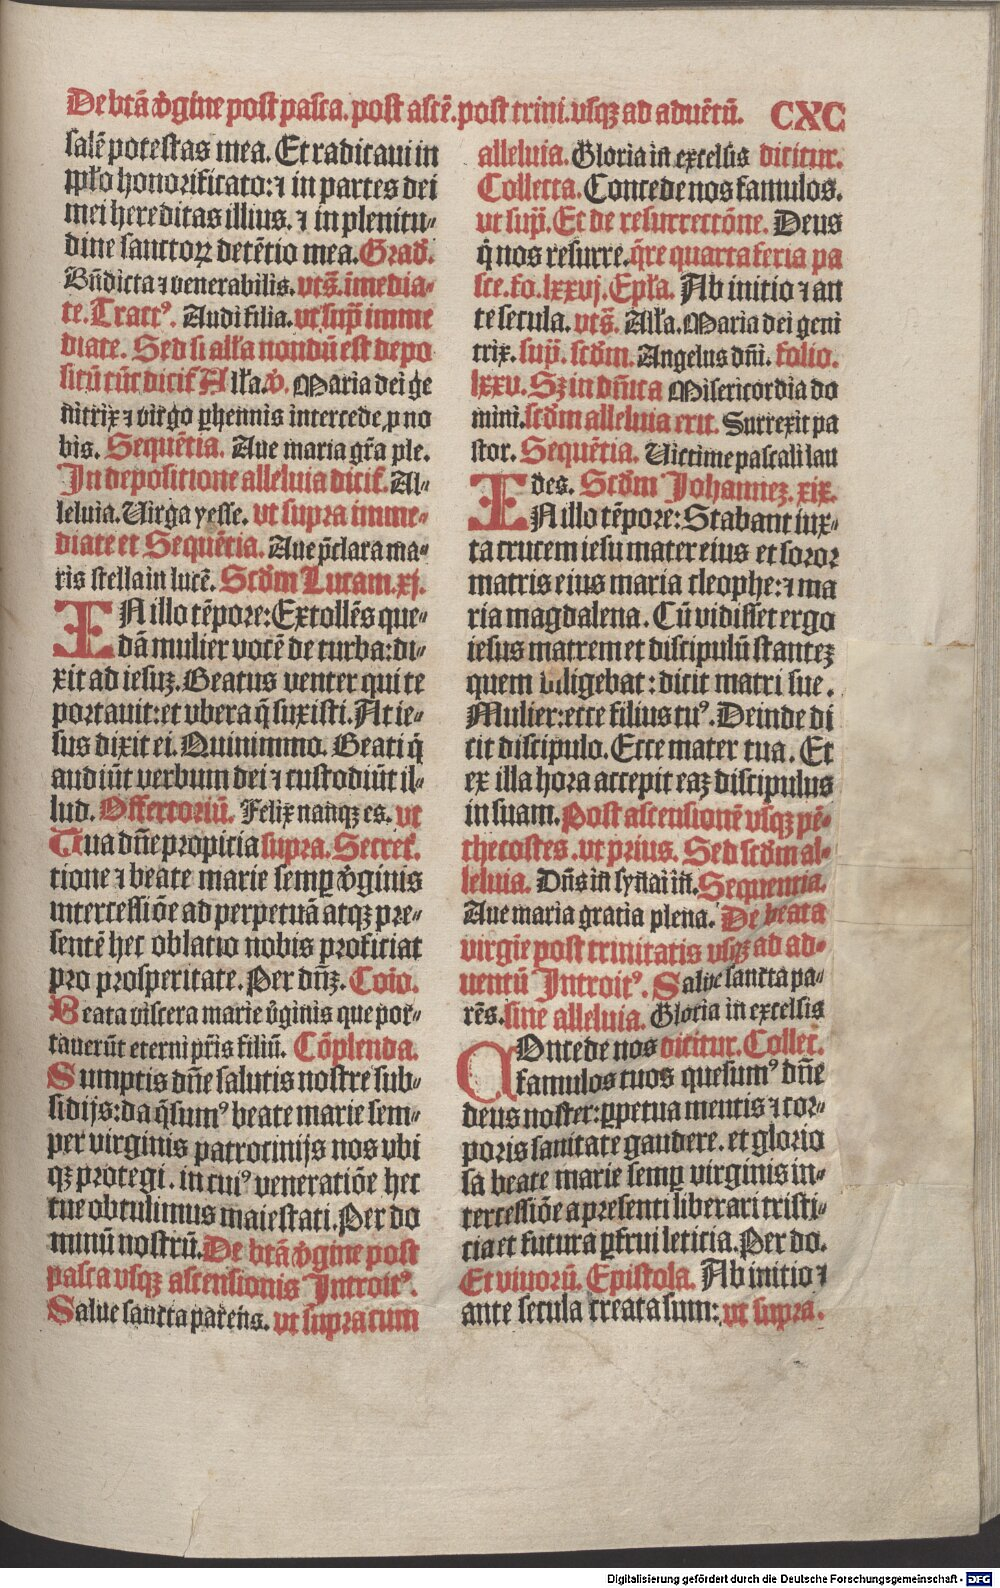 De btã v̾gine post pasca. post ascẽ. post trini. vsqꝫ ad aduẽtũ. CXC
salẽ potestas mea. Et radicaui in
pp̃lo honorificato: ⁊ in partes dei
mei hereditas illius. ⁊ in plenitu⸗
dine sanctoꝝ detẽtio mea. Grad̾.
Bñdicta ⁊ venerabilis. vts̃. imedia⸗
te. Tractꝰ. Audi filia. vt sup̃ imme
diate. Sed si all̃a nondũ est depo
sitũ tũc dicit̃ All̃a. v̾. Maria dei ge
nitrix ⁊ virgo ꝑhennis intercede ꝓ no
bis. Sequẽtia. Aue maria gr̃a ple.
In depositione alleluia dicit̃. Al⸗
leluia. Uirga yesse. vt supra imme⸗
diate et Sequẽtia. Aue p̃clara ma⸗
ris stella in lucẽ. Scd̃m Lucam. xj.
IN illo tẽpore: Extollẽs que⸗
dã mulier vocẽ de turba: di⸗
xit ad iesuꝫ. Beatus venter qui te
portauit: et vbera q̃ suxisti. At ie⸗
sus dixit ei. Quinimmo. Beati q̃
audiũt verbum dei ⁊ custodiũt il⸗
lud. Offertoriũ. Felix nanqꝫ es. vt
Tua dñe propicia supra. Secret̃.
tione ⁊ beate marie semꝑ v̾ginis
intercessiõe ad perpetuã atqꝫ pre⸗
sentẽ hec oblatio nobis proficiat
pro prosperitate. Per dñꝫ. Cõio.
Beata viscera marie v̾ginis que por⸗
tauerũt eterni pr̃is filiũ. Cõplenda.
Sumptis dñe salutis nostre sub⸗
sidijs: da q̃sumꝰ beate marie sem⸗
per virginis patrocinijs nos vbi
qꝫ protegi. in cuiꝰ veneratiõe hec
tue obtulimus maiestati. Per do
minũ nostrũ. De btã v̾gine post
pasca vsqꝫ ascensionis Introitꝰ.
Salue sancta parens. vt supra cum
alleluia. Gloria in excelsis dicitur.
Collecta. Concede nos famulos.
vt sup̃. Et de resurrectõne. Deus
q̃ nos resurre. q̃re quarta feria pa
sce. fo. lxxvj. Epl̃a. Ab initio ⁊ an
te secula. vts̃. All̃a. Maria dei geni
trix. sup̃. scd̃m. Angelus dñi. folio.
lxxv. Sꝫ in dñica Misericordia do
mini. scd̃m alleluia erit. Surrexit pa
stor. Sequẽtia. Uictime pascali lau
des. Scd̃m Johannez. xix.
IN illo tẽpore: Stabant iux⸗
ta crucem iesu mater eius et soror
matris eius maria cleophe: ⁊ ma
ria magdalena. Cũ vidisset ergo
iesus matrem et discipulũ stanteꝫ
quem diligebat: dicit matri sue.
Mulier: ecce filius tuꝰ. Deinde di
cit discipulo. Ecce mater tua. Et
ex illa hora accepit eaꝫ discipulus
in suam. Post ascensionẽ vsqꝫ pẽ⸗
thecostes. vt prius. Sed scd̃m al⸗
leluia. Dñs in synai in. Sequentia.
Aue maria gratia plena. De beata
virgiẽ post trinitatis vsqꝫ ad ad⸗
uentũ Introitꝰ. Salue sancta pa⸗
rẽs. sine alleluia. Gloria in excelsis
COncede nos dicitur. Collec.
famulos tuos quesumꝰ dñe
deus noster: ꝑpetua mentis ⁊ cor⸗
poris sanitate gaudere. et glorio
sa beate marie semꝑ virginis in⸗
tercessiõe a presenti liberari tristi⸗
cia et futura ꝑfrui leticia. Per do.
Et viuorũ. Epistola. Ab initio ⁊
ante secula creata sum: vt supra.
Digitalisierung gefördert durch die Deutsche Forschungsgemeinschaft - DFG